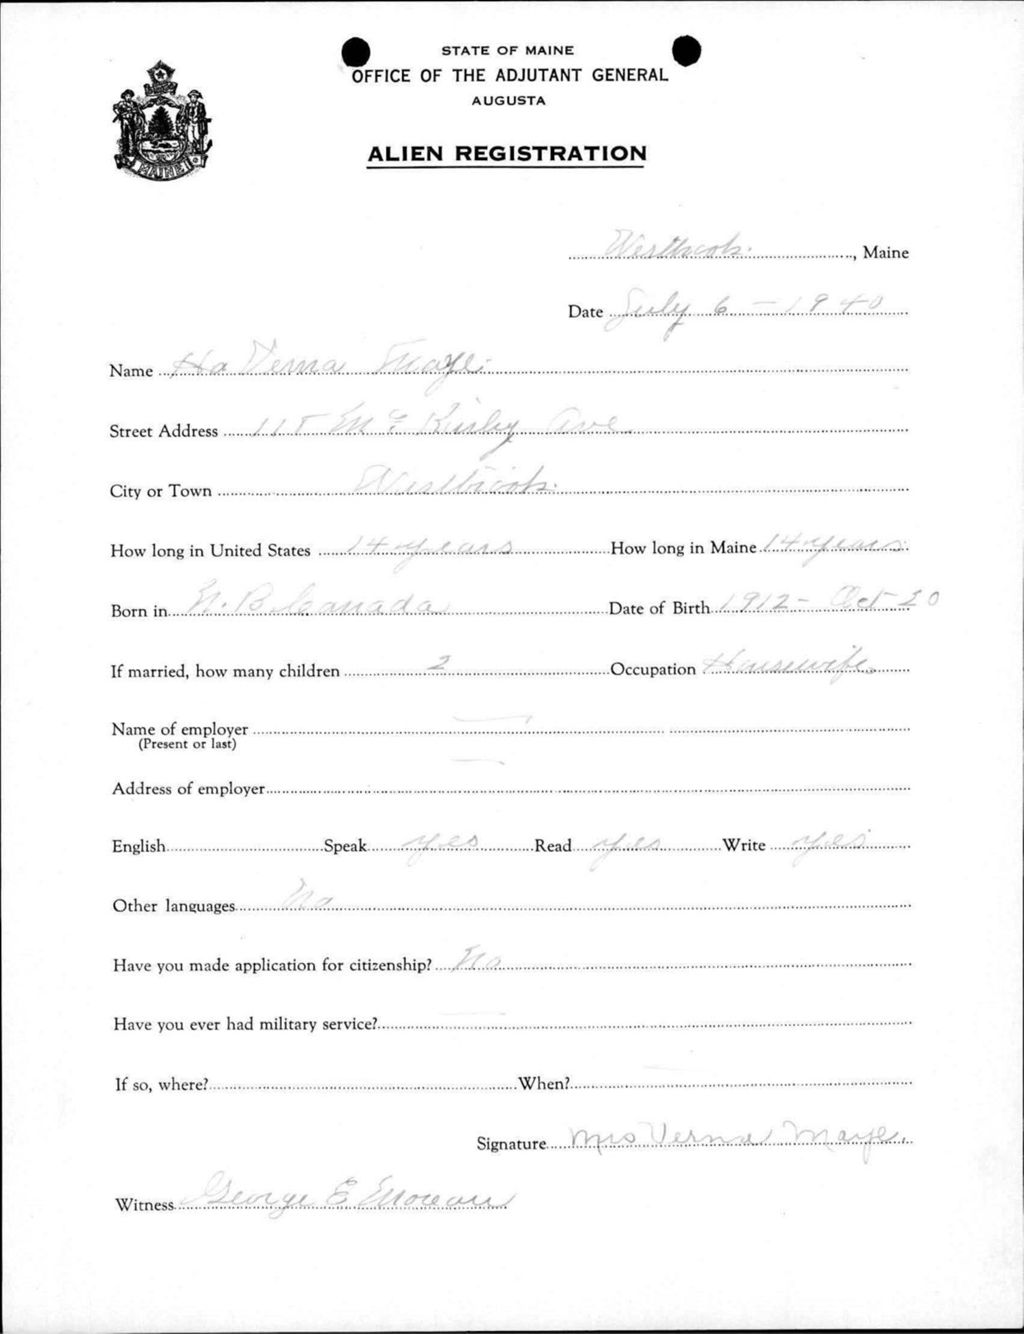 STATE OF MAINE
OFFICE OF THE ADJUTANT GENERAL
AUGUSTA
ALIEN REGISTRATION
MAINE
Westbrook, Maine
Date July 6 - 1940
Name Verna Maye
Street Address 115 Mc Kinley Ave
City or Town Westbrook
How long in United States 14 years How long in Maine 14 years
Born in N. B. Canada Date of Birth 1912 - Oct 20
If married, how many children 2 Occupation Housewife
Name of employer —
(Present or last)
Address of employer —
English Speak yes Read yes Write yes
Other languages No
Have you made application for citizenship? No
Have you ever had military service? —
If so, where? When? —
Signature Mrs Verna Maye
Witness George E